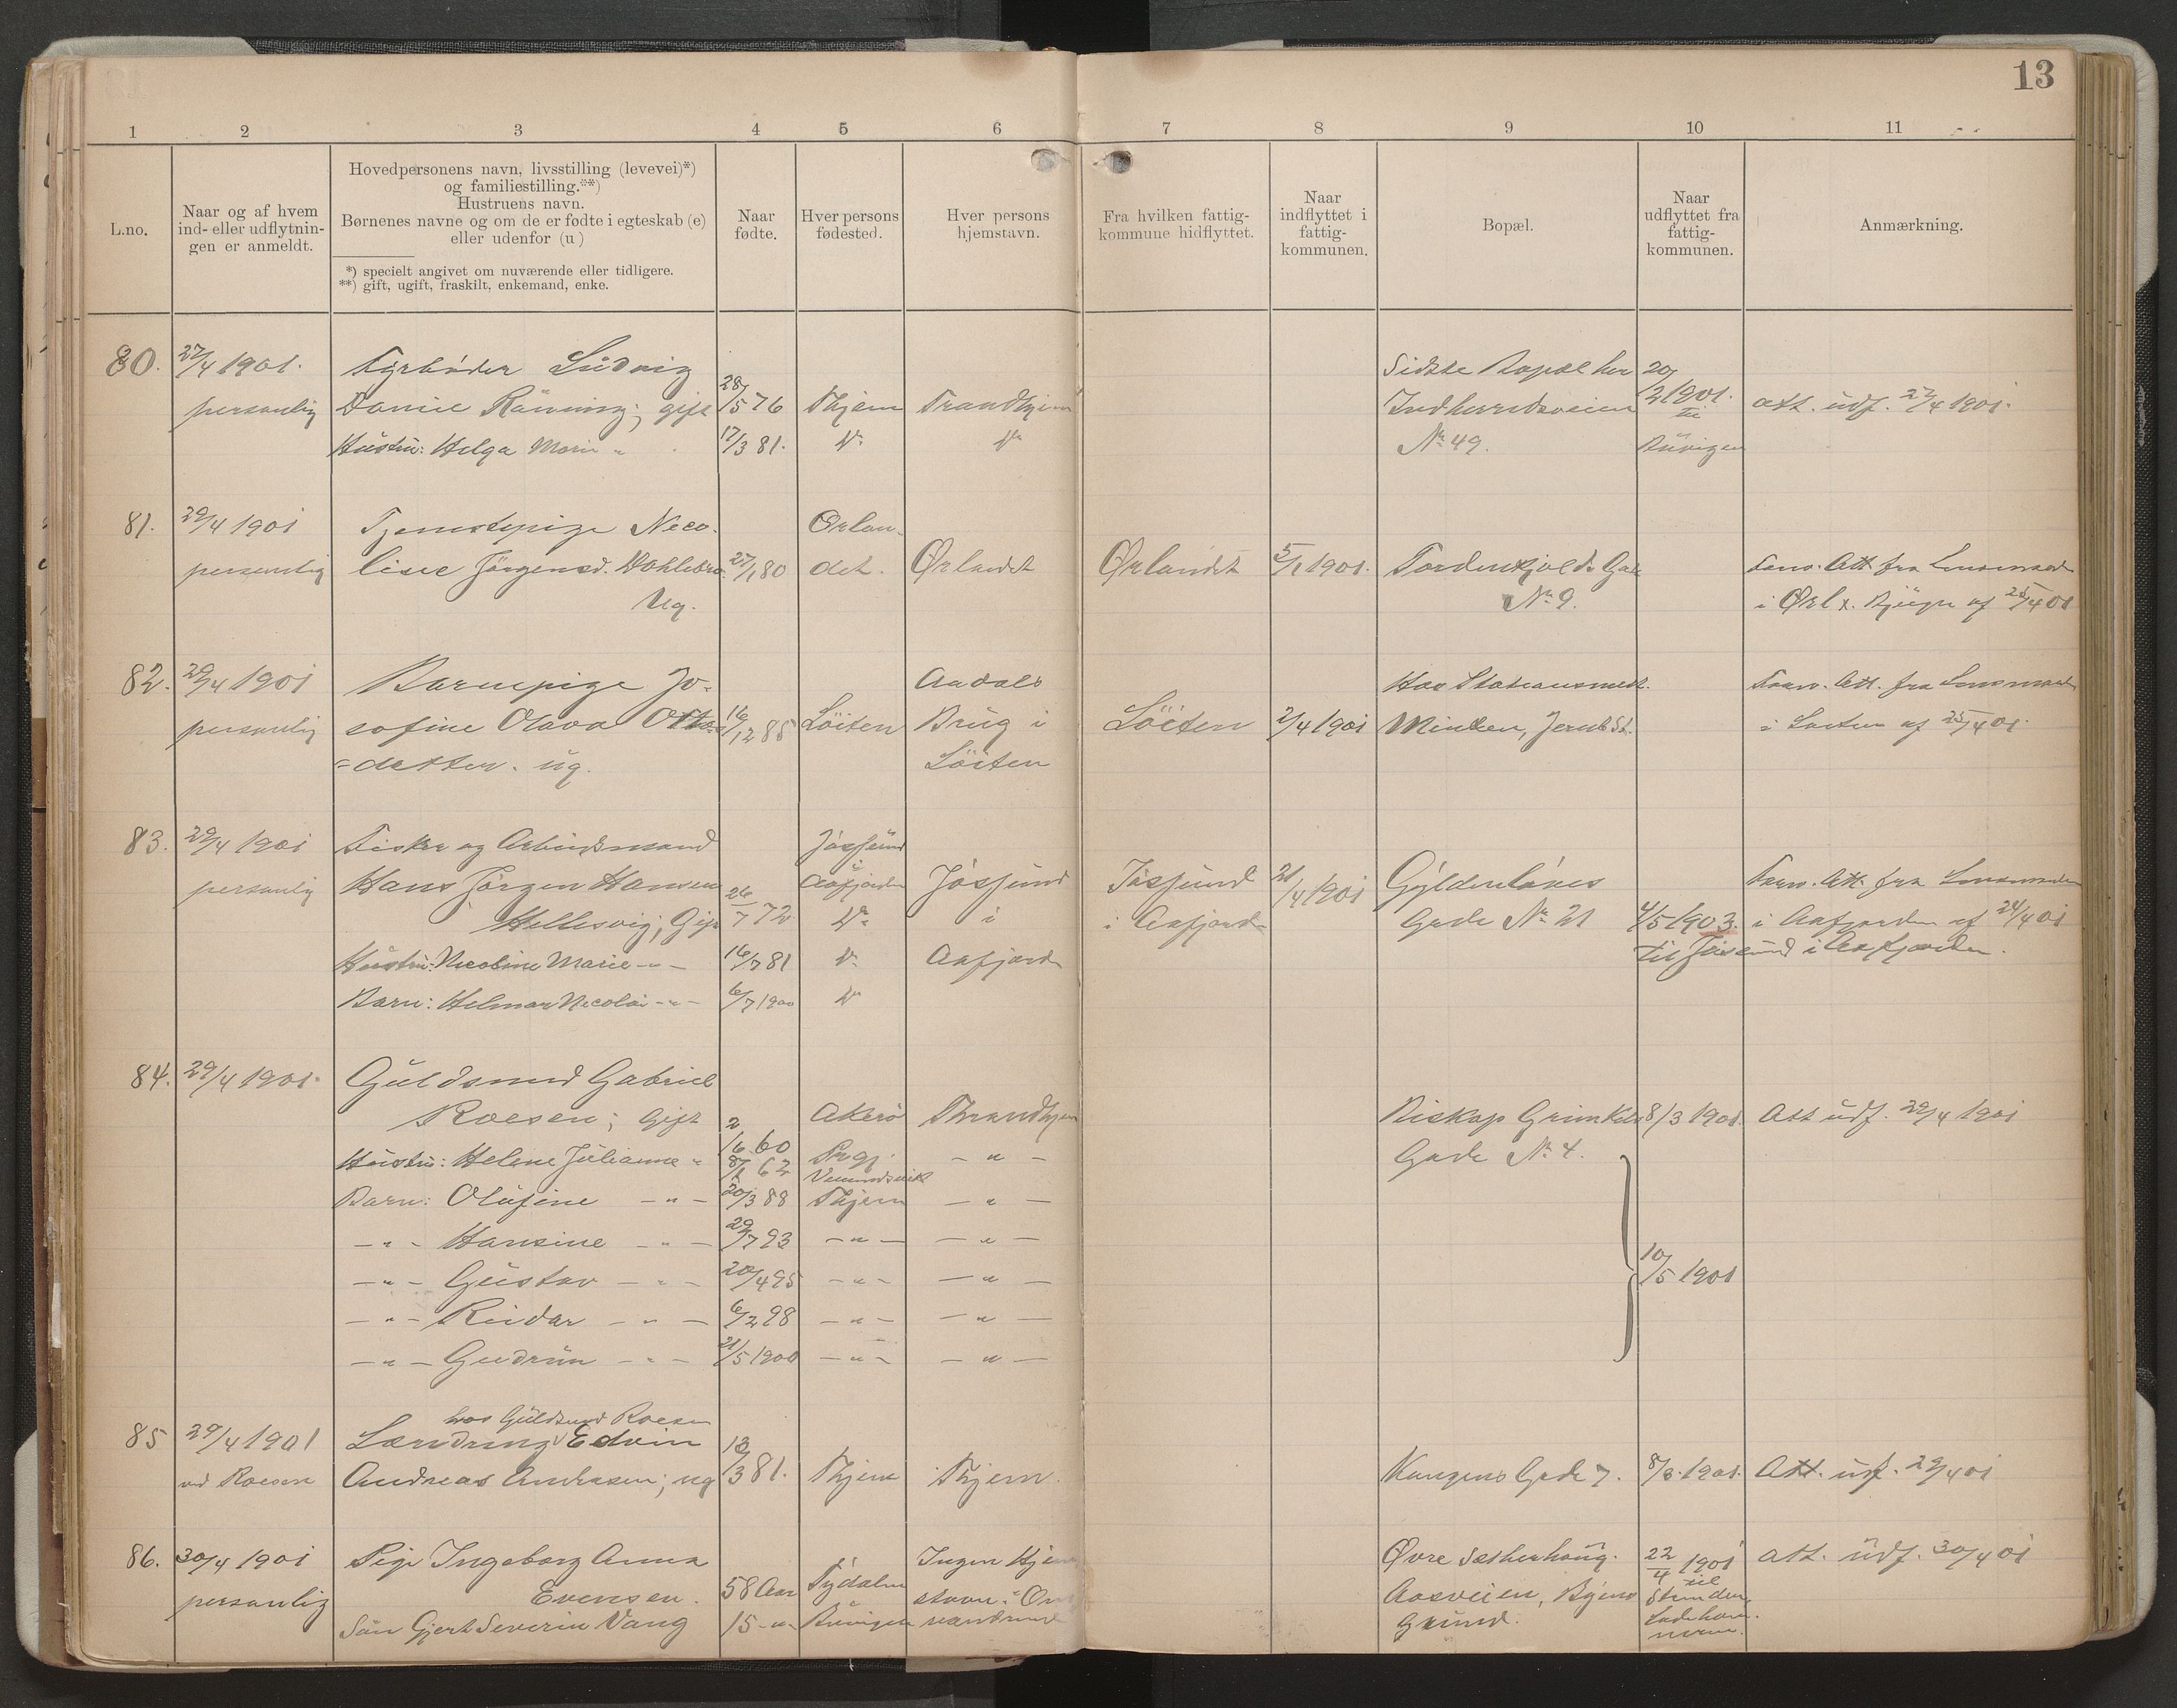 13
1 2 3 4 5 6 7 8 9 10 11
L.no.
Naar og af hvem
ind- eller udflytnin-
gen er anmeldt.
Hovedpersonens navn, livsstilling (levevei)*)
og familiestilling.**)
Hustruens navn.
Børnenes navne og om de er fødte i egteskab (e)
eller udenfor (u)
*) specielt angivet om nuværende eller tidligere.
**) gift, ugift, fraskilt, enkemand, enke.
Naar
fødte.
Hver persons
fødested.
Hver persons
hjemstavn.
Fra hvilken fattig-
kommune hidflyttet.
Naar
indflyttet i
fattig-
kommunen.
Bopæl.
Naar
udflyttet fra
fattig-
kommunen.
Anmærkning.
80. 27/4 1901. Fyrbøder Ludvig Sidste Bopæl her 20/
personlig Rönning; gift 28/5 76 Thjem Trondhjem Indherredsveien 2 1901. att. udf. 27/4 1901.
Hustru: Helga Marie " 17/3 81. Do Do No 49.
81. 29/4 1901 Tjenestepige Nico- Ørlan-
personlig line Jörgensd. 27/1 80 det. Ørlandet Ørlandet 5/1 1901. Tordenskjolds Gade Att. fra Lensmand
Ug. No 9. i Ørl. 25/4 01
82. 29/4 1901 Barnepige Jo- Aadals Hos Stationsmest. Att. fra Lensmand
personlig sefine Olava 16/12 85 Löiten Brug i Löiten 2/4 1901 Jernb. St. i Löiten af 25/4 01.
=datter. ug. Löiten
83. 29/4 1901 Fisker og Arbeidsmand Jössund
personlig Hans Jörgen Hansen 26/7 72 Aafjorden Jössund Jössund 21/4 1901 Gyldenløves Att. fra Lensmanden
Hellesvig; Gift Do i i Aafjord Gade No 21 4/5 1903. i Aafjorden af 24/4 01
Hustru: Nicoline Marie -"- 16/7 81 Do Aafjord til Jössund i Aafjorden.
Barn: Helmar Nicolai -"- 6/7 1900 Do
84. 29/4 1901. Guldsmed Gabriel
Roesen; Gift 2/6 60 Akerö Throndhjem Biskop Grimkels 8/3 1901. Att udf. 29/4 1901
Hustru: Helene Julianne " 8/1 62 - " - Gade No 4.
Barn: Olufine - " - 20/3 88 Thjem - " -
- " - Hansine - " - 29/7 93 - " - - " -
- " - Gustav - " - 20/4 95 - " - - " - 10/5 1901
- " - Reidar - " - 6/2 98 - " - - " -
- " - Gudrun - " - 21/5 1900 - " - - " -
hos Guldsmed Roesen
85 29/4 1901 Læredreng Edvin
ved Roesen Andreas Andresen; ug 13/3 81. Thjem Thjem. Kongens Gade 7. 8/3 1901. Att. udf. 29/4 01
86. 30/4 1901 Pige Ingeborg Anna Ingen Hjem Øvre 22/4 1901 att. udf. 30/4 01
personlig Evensen. 58 Aar Tydalen stavn. Aasveien, Byens til Strinden
Sön Gjert Severin Vang 15 -"- Buvigen Grund. Ladeham-